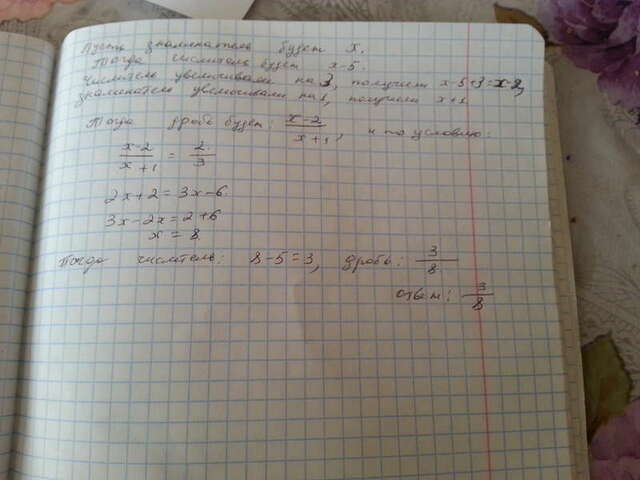 Пусть знаменатель будет x.
Тогда числитель будет x-5.
Числитель увеличиваем на 3, получим x-5+3=x-2,
знаменатель увеличиваем на 1, получим x+1
Тогда дробь будет: x-2/x+1, и по условию:
x-2/x+1 = 2/3
2x+2=3x-6
3x-2x=2+6
x=8
Тогда числитель: 8-5=3, дробь: 3/8
ответ: 3/8